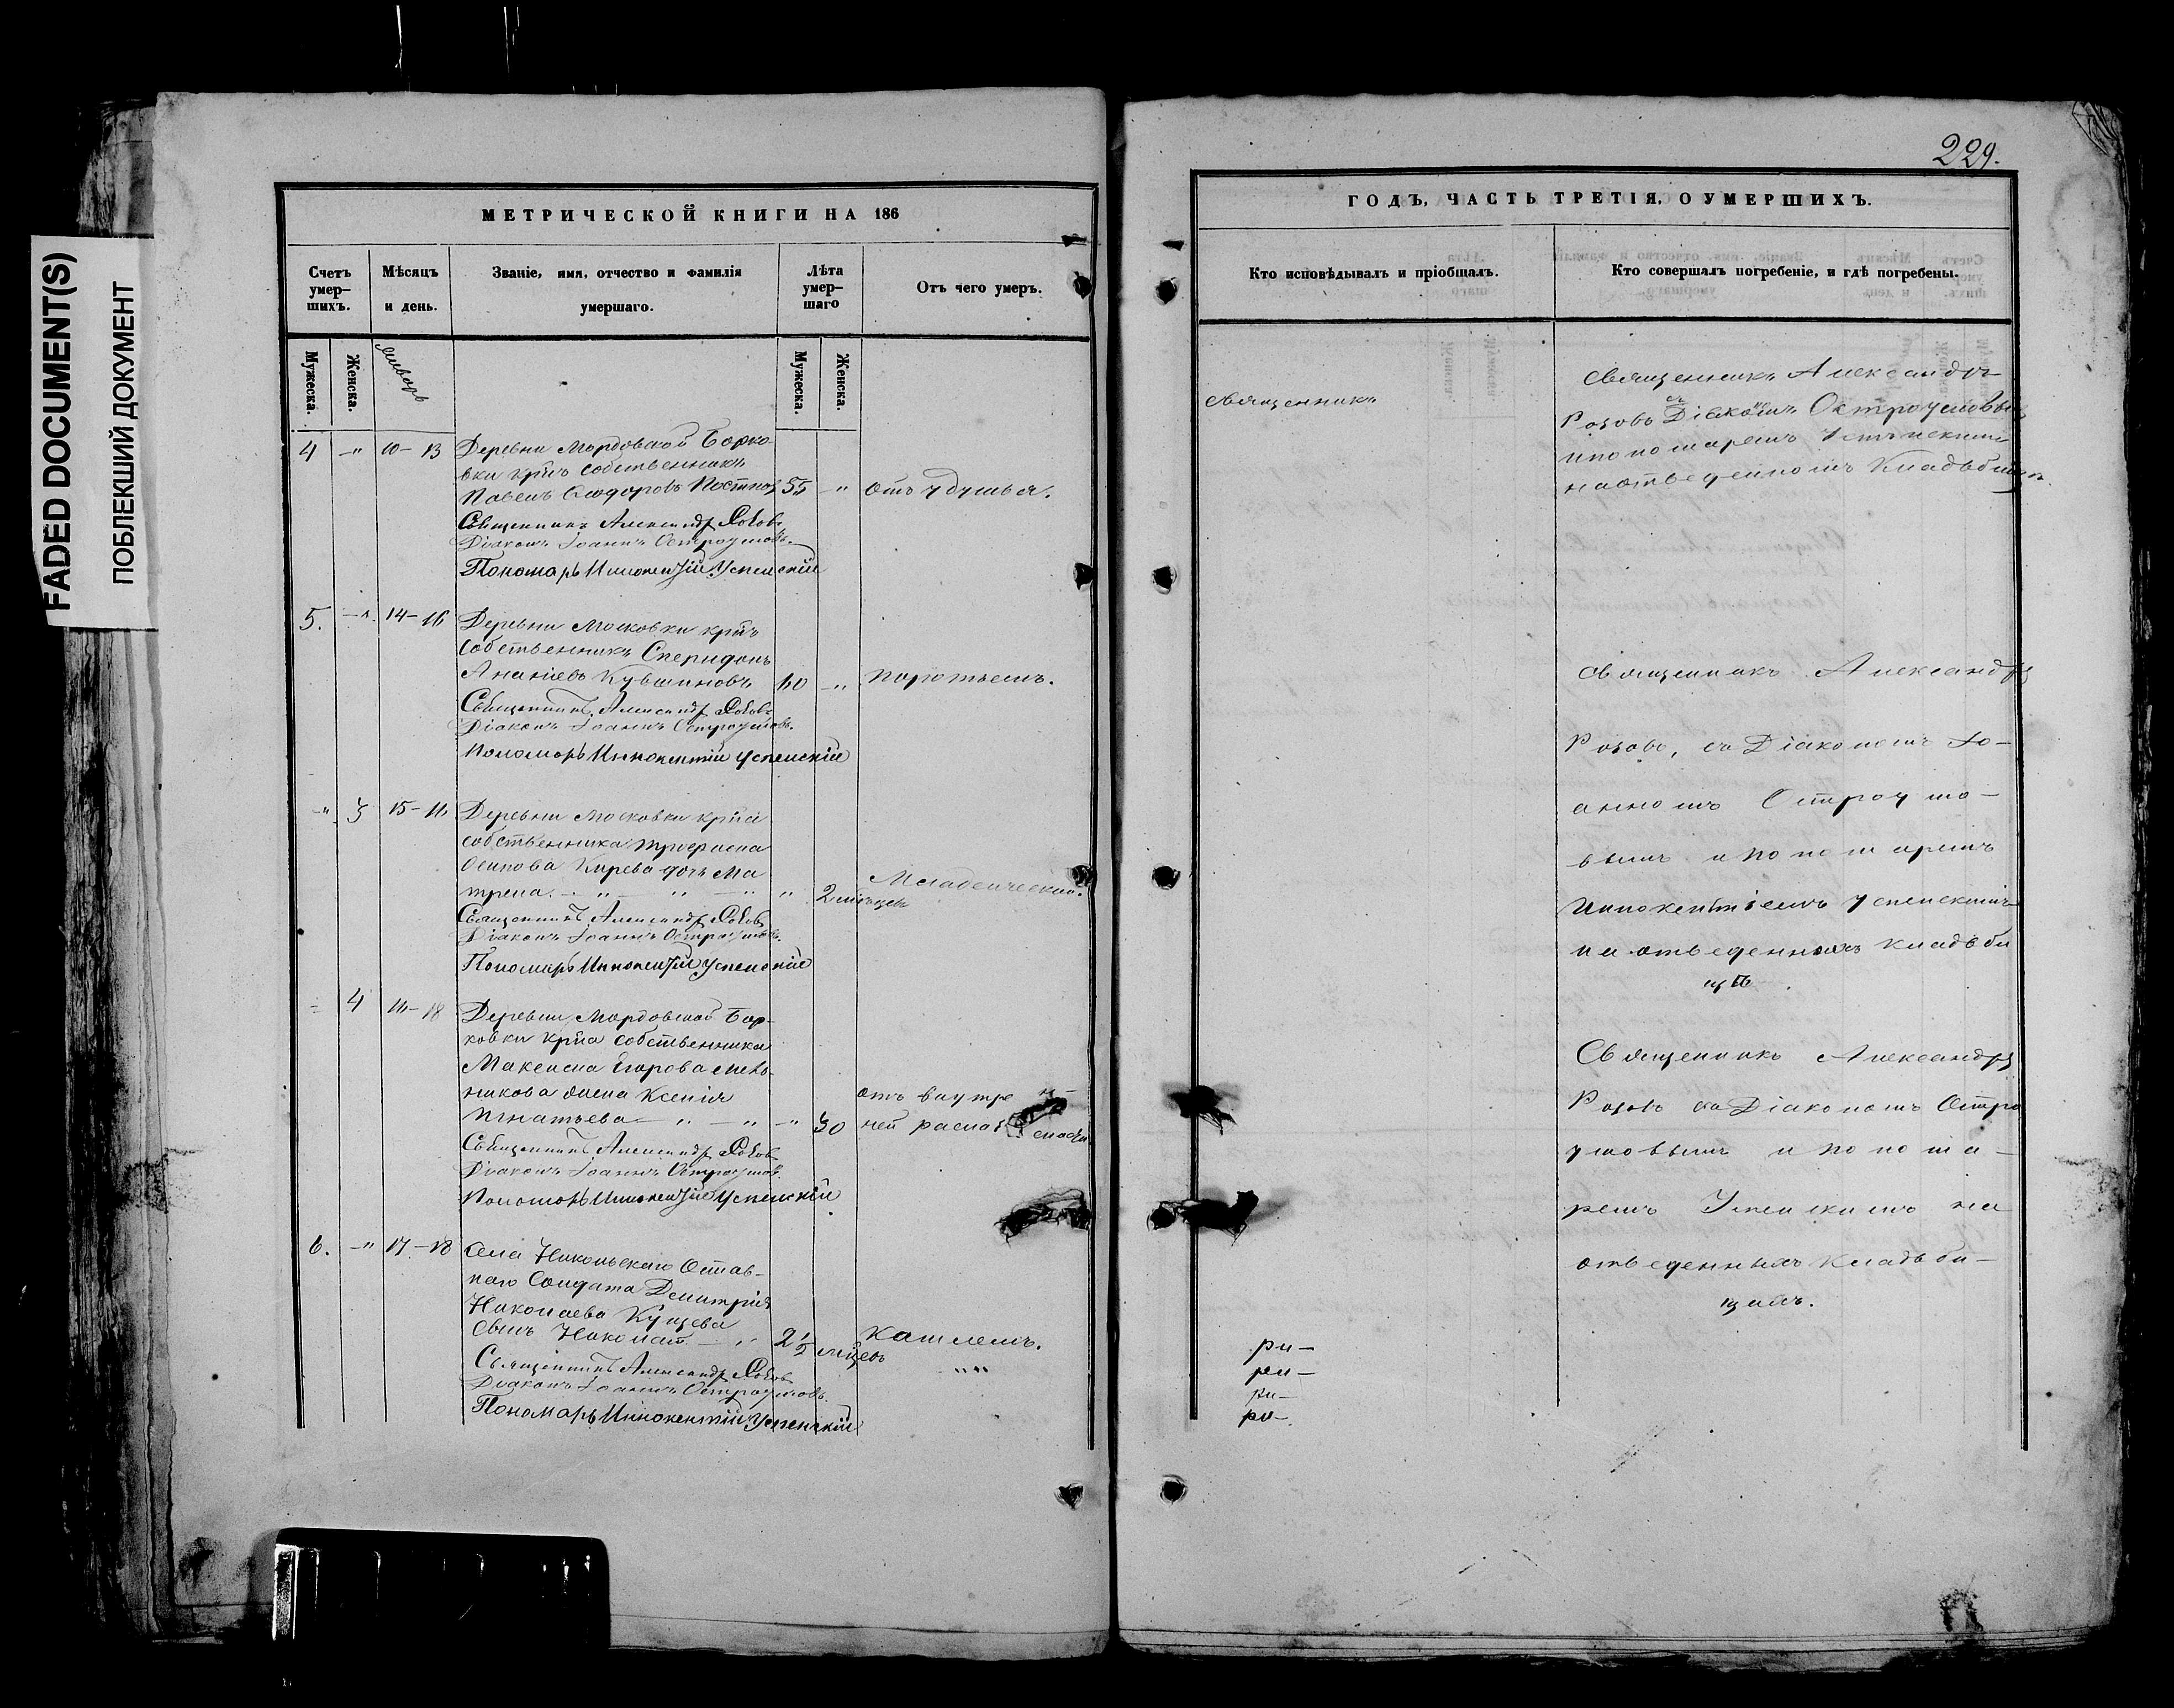 FADED DOCUMENT(S)
ПОБЛЕКШИЙ ДОКУМЕНТ
МЕТРИЧЕСКОЙ КНИГИ НА 186
Счетъ умер-шихъ.
Мѣсяцъ и день.
Званіе, имя, отчество и фамилія умершаго.
Лѣта умер-шаго
Отъ чего умеръ.
Мужеска.
Женска.
Январь
Мужеска.
Женска.
4 -„ 10-13 Деревни Мордовской Борко-
вки крйъ собственникъ
Павелъ Постнов 55 -„ отъ удушья.
Священникъ Александръ Розовъ
Діаконъ Іоаннъ Остроумовъ.
Пономарь Иннокентій Успенскій
5. -„ 14-16 Деревни Московки крйъ
собственникъ Спиридонъ
Ананіевъ Кувшиновъ 60 -„
Священникъ Александръ Розовъ
Діаконъ Іоаннъ Остроумовъ.
Пономарь Иннокентій Успенскій
-„ 3 15-16 Деревни Московки крйа
собственника Трофима
Осипова Кирева дочь Ма
трена. „ 2 мѣсяцевъ Младенческой.
Священникъ Александръ Розовъ
Діаконъ Іоаннъ Остроумовъ.
Пономарь Иннокентій Успенскій
4 16-18 Деревни Мордовской Бор-
ковки крйа собственника
Максима Егорова Мель-
никова жена Ксенія
Игнатьева -„ 30 отъ внутрен-
ней
Священникъ Александръ Розовъ
Діаконъ Іоаннъ Остроумовъ.
Пономарь Иннокентій Успенскій
6. -„ 17-18 Села Никольскаго Остав-
наго Солдата Димитрія
Николаева Купцева
сынъ Николай 2½ мѣцевъ Кашлемъ.
Священникъ Александръ Розовъ
Діаконъ Іоаннъ Остроумовъ.
Пономарь Иннокентій Успенскій
229.
ГОДЪ, ЧАСТЬ ТРЕТІЯ, О УМЕРШИХЪ.
Кто исповѣдывалъ и пріобщалъ.
Кто совершалъ погребеніе, и гдѣ погребены.
священникъ
Священникъ Александръ
Розовъ съ Діакономъ Остроумовымъ
и пономаремъ Успенскимъ
на отведенномъ Кладбищѣ.
Священникъ Александръ
Розовъ, съ Діакономъ Іо-
анномъ Остроумо-
вымъ и пономаремъ
Иннокентіемъ Успенскимъ
на отведенномъ Кладби
щѣ.
Священникъ Александръ
Розовъ съ Діакономъ Остро
умовымъ и понома-
ремъ Успенскимъ на
отведенныхъ Кладби-
щахъ.
ри-
ри-
ри-
ри-